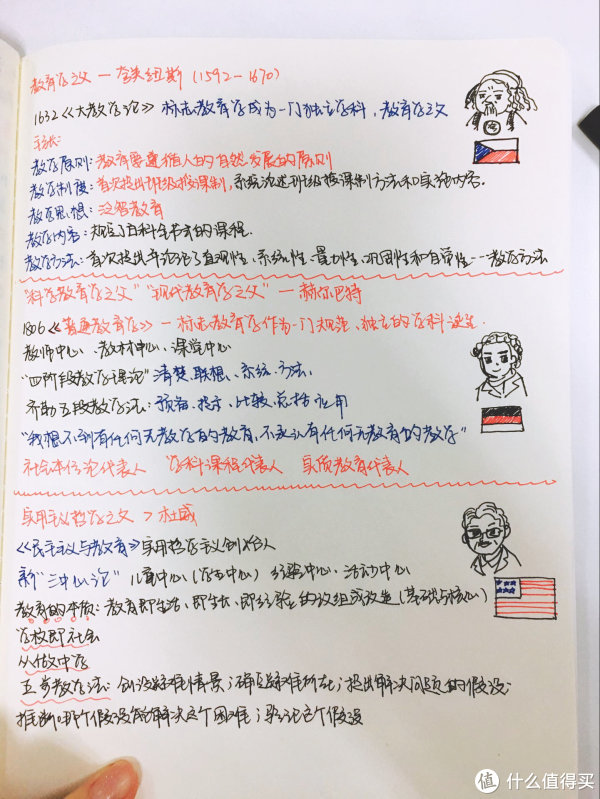 教育学之父 — 夸美纽斯 (1592-1670)
1632《大教学论》标志教育学成为一门独立学科，教育学之父
主张:
教学原则: 教育要遵循人的自然发展的原则
教学制度: 首次提出班级授课制, 系统论述班级授课制方法和实施内容.
教学思想: 泛智教育
教学内容: 规定了百科全书式的课程.
教学方法: 首次提出并论证了直观性、系统性、量力性、巩固性和自觉性……教学方法
"科学教育学之父" "现代教育学之父" — 赫尔巴特
1806《普通教育学》— 标志教育学作为一门规范、独立的学科诞生.
教师中心、教材中心、课堂中心
"四阶段教学理论" 清楚、联想、系统、方法.
齐勒五段教学法: 预备、提示、比较、总括、应用
"我想不到有任何无教学的教育, 不承认有任何无教育的教学"
社会本位论代表人 学科课程代表人 实质教育代表人
实用主义哲学之父 > 杜威
《民主主义与教育》实用哲学主义创始人
新"三中心论" 儿童中心(学生中心) 经验中心. 活动中心
教育的本质: 教育即生活, 即生长, 即经验的改组或改造 (基础与核心)
学校即社会
从做中学
五步教学法: 创设疑难情景; 确定疑难所在; 提出解决问题的假设;
推断哪个假设能解决这个困难; 验证这个假设
值 什么值得买